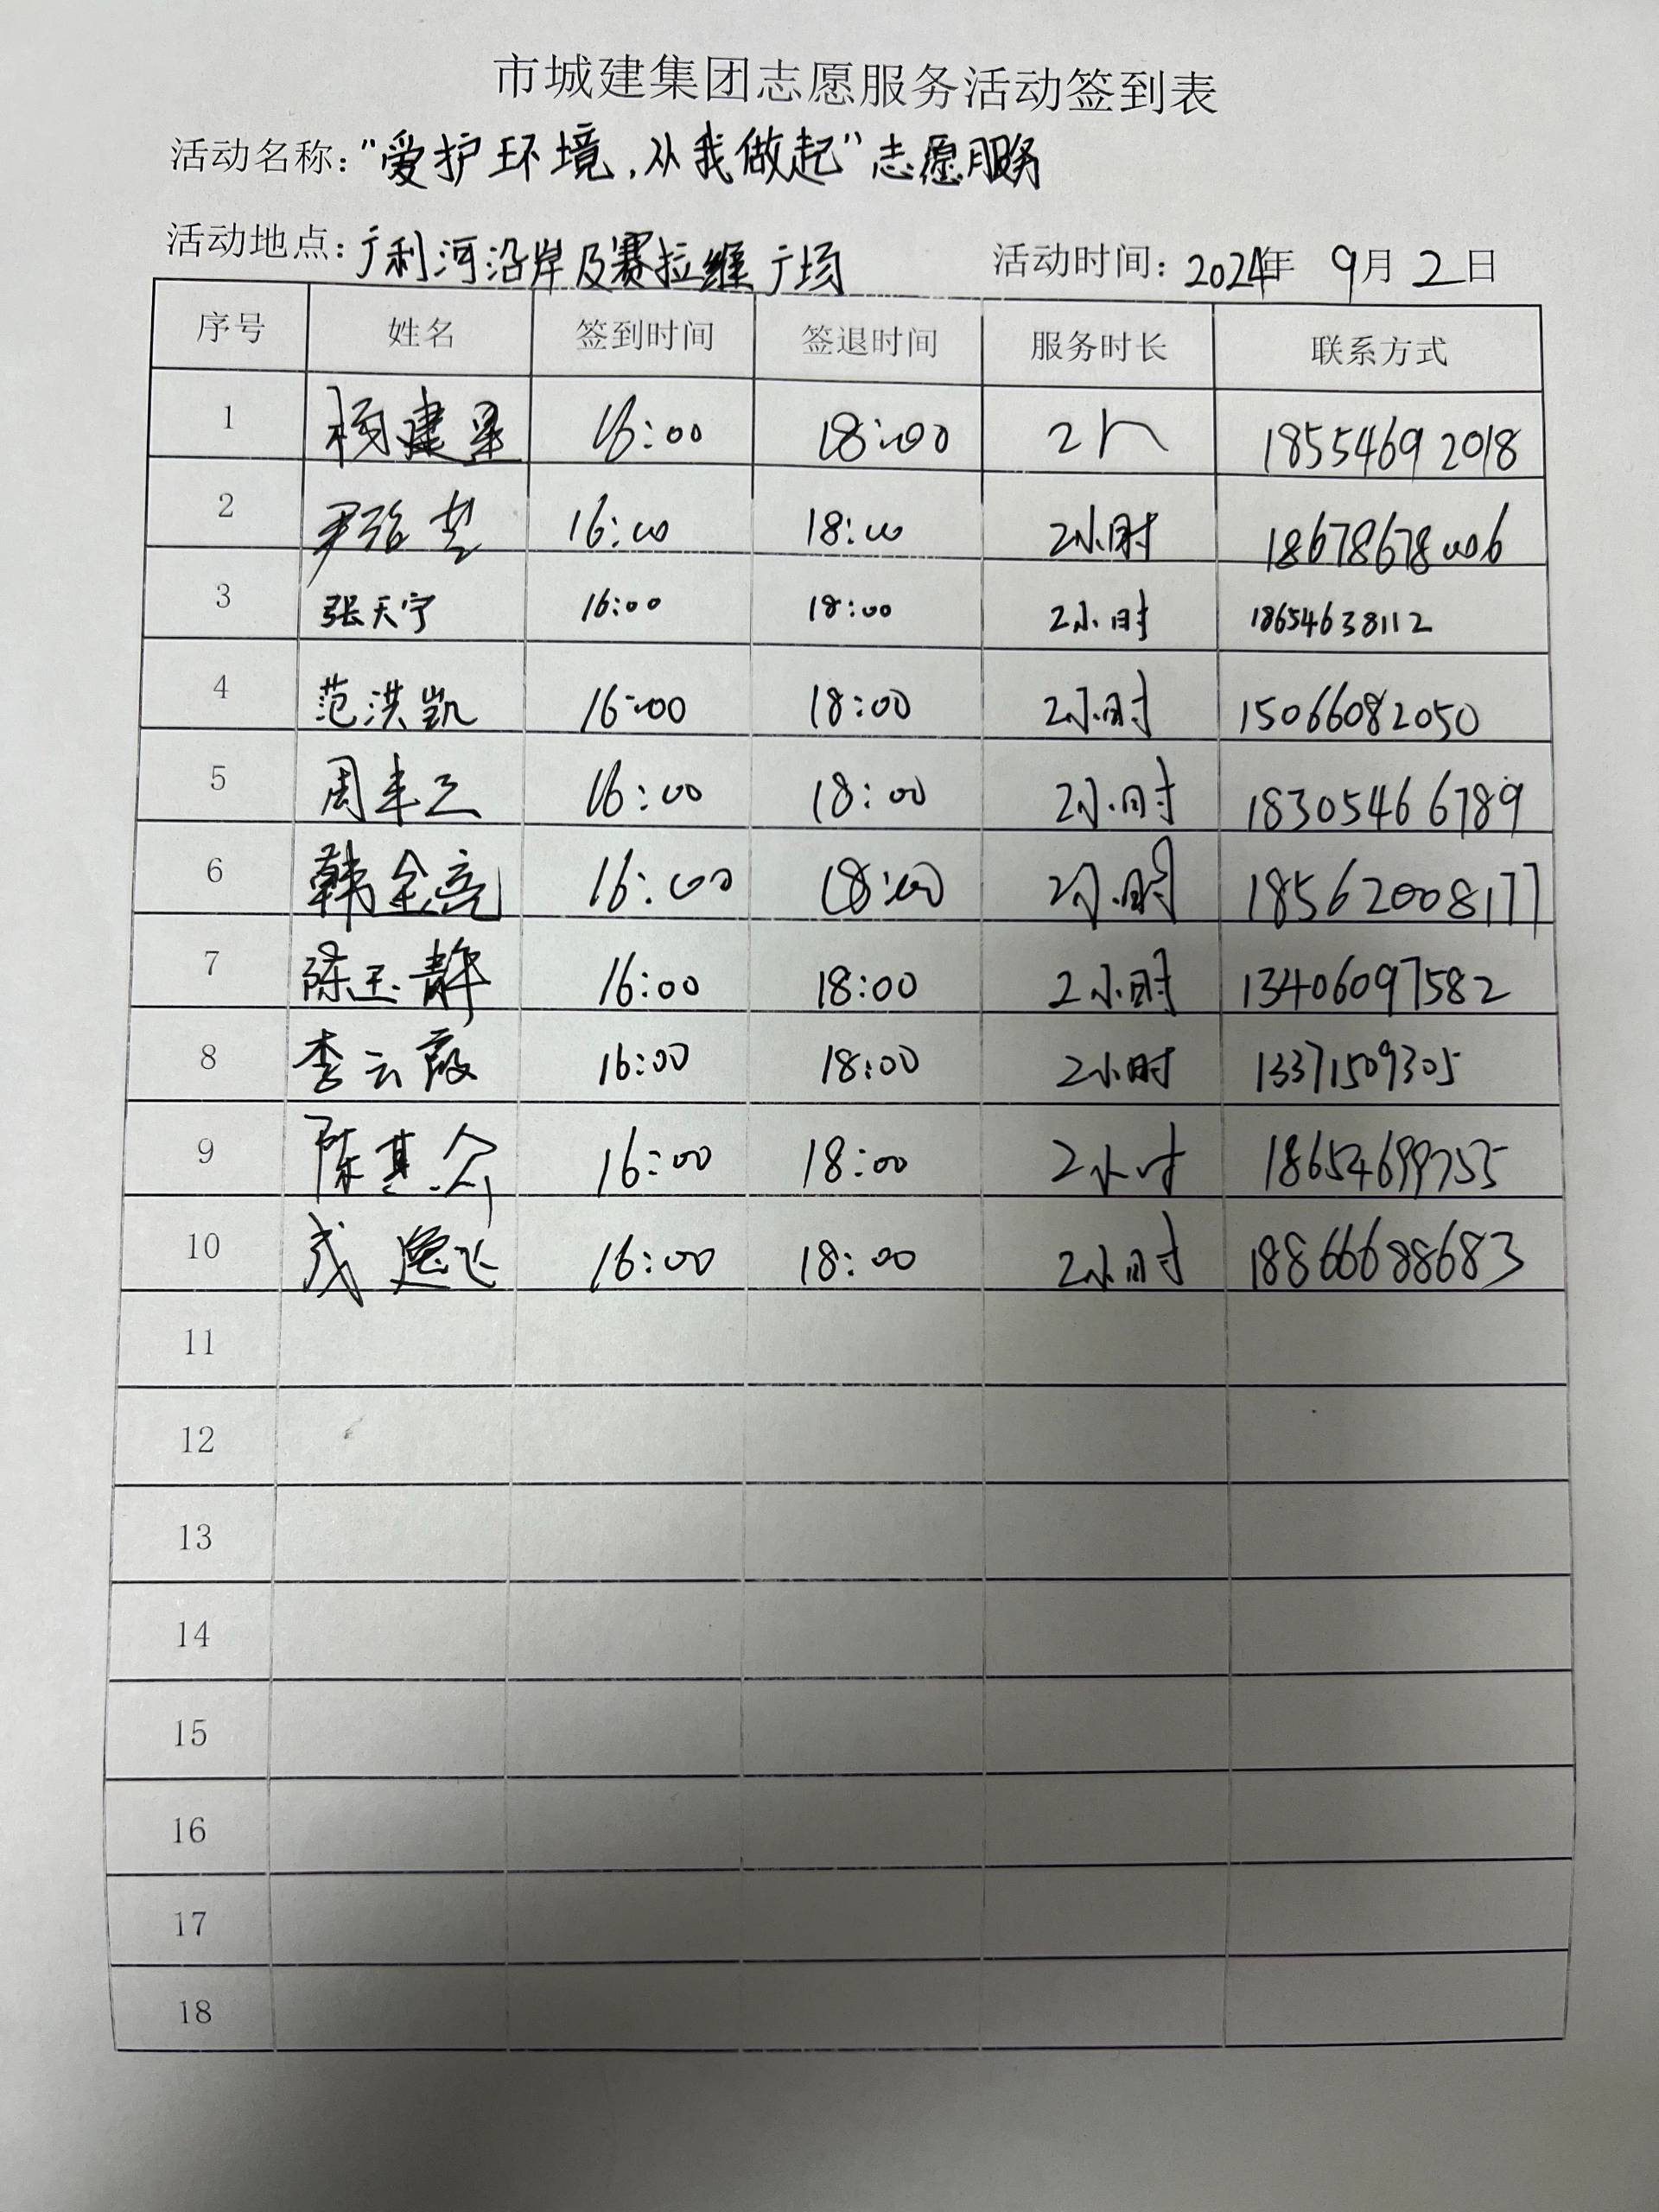 市城建集团志愿服务活动签到表
活动名称："爱护环境,从我做起"志愿服务
活动地点：广利河沿岸及赛拉维广场 活动时间：2024年 9月2日
序号 姓名 签到时间 签退时间 服务时长 联系方式
1 杨建星 16:00 18:00 2h 18554692018
2 尹 16:00 18:00 2小时 18678678006
3 张天宁 16:00 18:00 2小时 18654638112
4 范洪凯 16:00 18:00 2小时 15066082050
5 周 16:00 18:00 2小时 18305466789
6 韩金亮 16:00 18:00 2小时 18562008177
7 陈玉静 16:00 18:00 2小时 13406097582
8 李云霞 16:00 18:00 2小时 13371509305
9 陈其 16:00 18:00 2小时 18654699755
10 16:00 18:00 2小时 18866688683
11
12
13
14
15
16
17
18